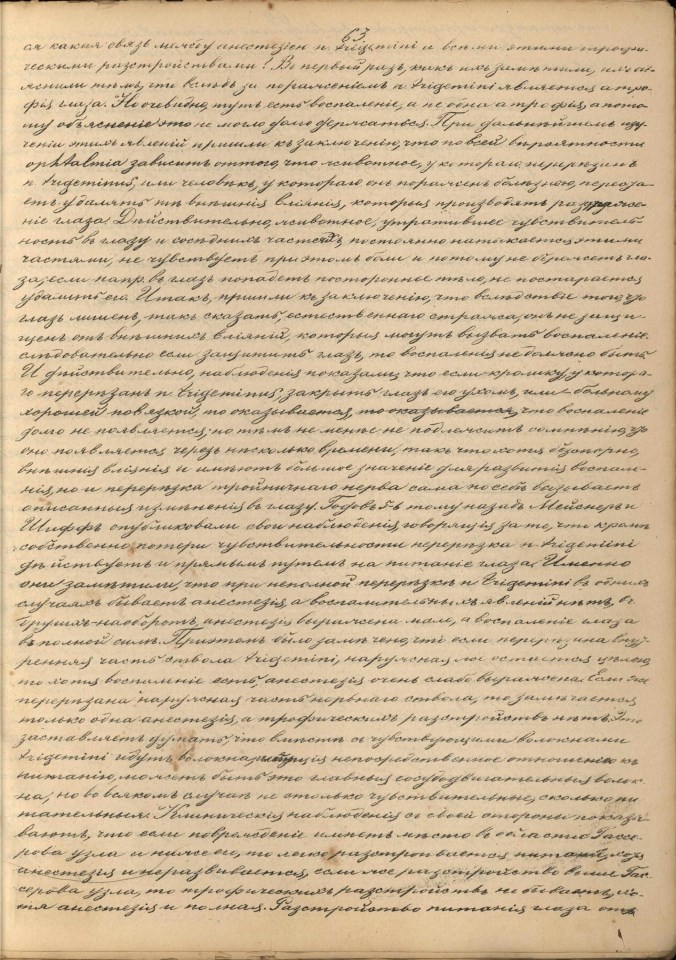 63
ся какая связь между анестезіею n. trigemini и всѣми этими трофи-
ческими разстройствами? Въ первый разъ, какъ ихъ замѣтили, ихъ объ-
яснили тѣмъ, что вслѣдъ за пораженіемъ n. trigemini является атро-
фія глаза. Но очевидно, тутъ есть воспаленіе, а не одна атрофія, а пото-
му объясненіе это не могло долго держаться. При дальнѣйшемъ изу-
ченіи этихъ явленій пришли къ заключенію, что по всей вѣроятности
ophtalmia зависитъ оттого, что животное, у котораго перерѣзанъ
n. trigeminus, или человѣкъ, у котораго онъ пораженъ болѣзнью, переста-
етъ удалять тѣ внѣшнія вліянія, которыя производятъ раздраже-
ніе глаза. Дѣйствительно, животное, утратившее чувствитель-
ность въ глазу и сосѣднихъ частяхъ, постоянно натыкается этими
частями, не чувствуетъ при этомъ боли и потому не бережетъ гла-
за; если напр. въ глазъ попадетъ постороннее тѣло, не постарается
удалить его. Итакъ, пришли къ заключенію, что вслѣдствіе того, что
глазъ лишенъ, такъ сказать, естественнаго стража, онъ не защи-
щенъ отъ внѣшнихъ вліяній, которыя могутъ вызвать воспаленіе.
слѣдовательно если защитить глазъ, то воспаленія не должно быть.
И дѣйствительно, наблюденія показали, что если кролику, у котора-
го перерѣзанъ n. trigeminus, закрыть глазъ его ухомъ, или больному
хорошей повязкой, то оказывается, то оказывается, что воспаленіе
долго не появляется; но тѣмъ не менѣе не подлежитъ сомнѣнію, что
оно появляется черезъ нѣсколько времени; такъ что хотя безспорно,
внѣшнія вліянія и имѣютъ большое значеніе для развитія воспале-
нія, но и перерѣзка тройничнаго нерва сама по себѣ вызываетъ
описанныя измѣненія въ глазу. Годовъ 5 тому назадъ Мейснеръ и
Шиффъ опубликовали свои наблюденія, говорящія за то, что кромѣ
собственно потери чувствительности перерѣзка n. trigemini
дѣйствуетъ и прямымъ путемъ на питаніе глаза. Именно
они замѣтили, что при неполной перерѣзкѣ n. trigemini въ однихъ
случаяхъ бываетъ анестезія, а воспалительныхъ явленій нѣтъ, въ
другихъ наоборотъ, анестезія выражена мало, а воспаленіе глаза
въ полной силѣ. При этомъ было замѣчено, что если перерѣзана внут-
ренняя часть ствола trigemini, наружная же остается цѣлою,
то хотя воспаленіе есть, анестезія очень слабо выражена. Если же
перерѣзана наружная часть нервнаго ствола, то замѣчается
только одна анестезія, а трофическихъ разстройствъ нѣтъ. Это
заставляетъ думать, что вмѣстѣ съ чувствующими волокнами
trigemini идутъ волокна, имѣющія непосредственное отношеніе къ
питанію, можетъ быть это главныя сосудодвигательныя волок-
на, но во всякомъ случаѣ не столько чувствительные, сколько пи-
тательныя. Клиническія наблюденія съ своей стороны показы-
ваютъ, что если поврежденіе имѣетъ мѣсто въ области Гассе-
рова узла и ниже его, то легко разстроивается питаніе, хотя
анестезія и не развивается, если же разстройство выше Гас-
серова узла, то трофическихъ разстройствъ не бываетъ, хо-
тя анестезія и полная. Разстройство питанія глаза отъ